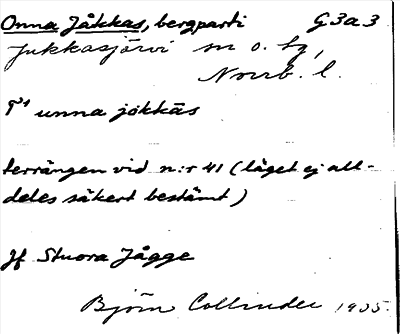 Onna Jåkkas, bergparti G3a3
Jukkasjärvi sn o. tg,
Norrb. l.
unna jökkás
terrängen vid n:r 41 (läget ej all-
deles säkert bestämt)
Jf Stuora Jågge
Björn Collinder 1935.